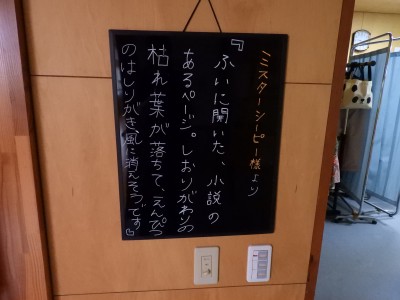 ミスターシービー様より
『ふいに開いた、小説の
あるページ。しおりがわりの
枯れ葉が落ちて、えんぴつ
のはしりがき、風に消えそうです』